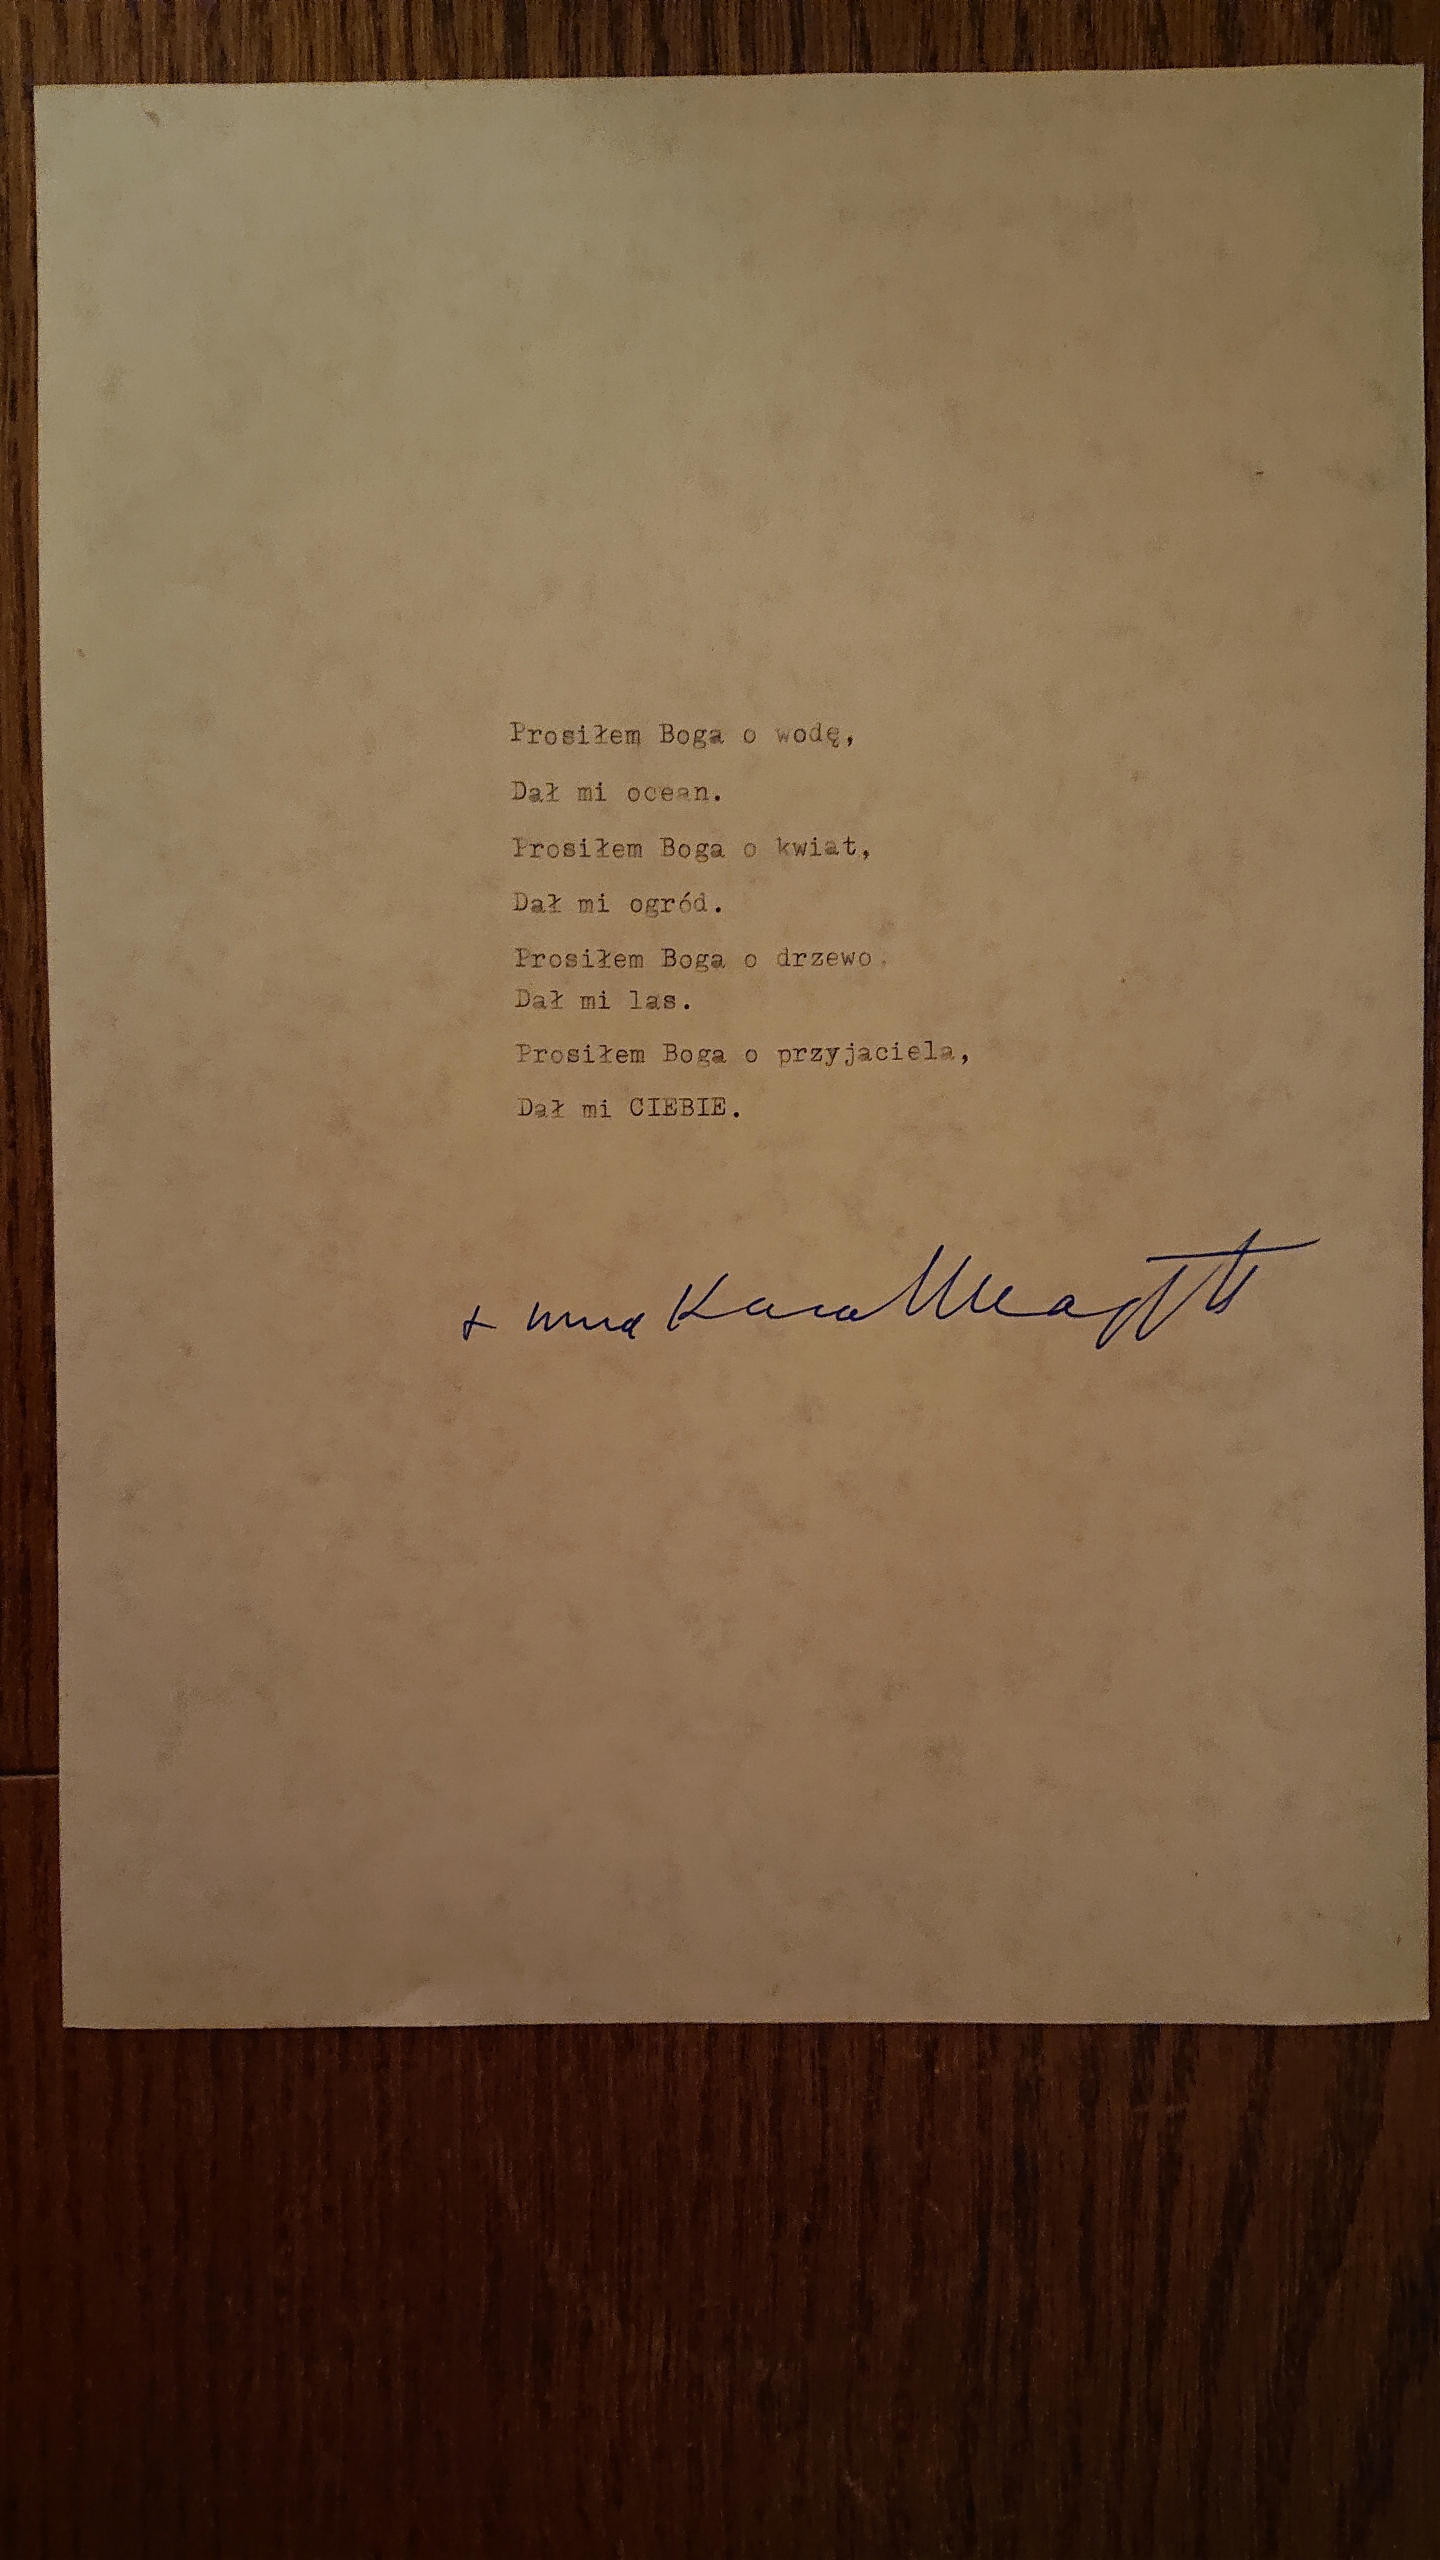 Prosiłem Boga o wodę,
Dał mi ocean.
Prosiłem Boga o kwiat,
Dał mi ogród.
Prosiłem Boga o drzewo.
Dał mi las.
Prosiłem Boga o przyjaciela,
Dał mi CIEBIE.